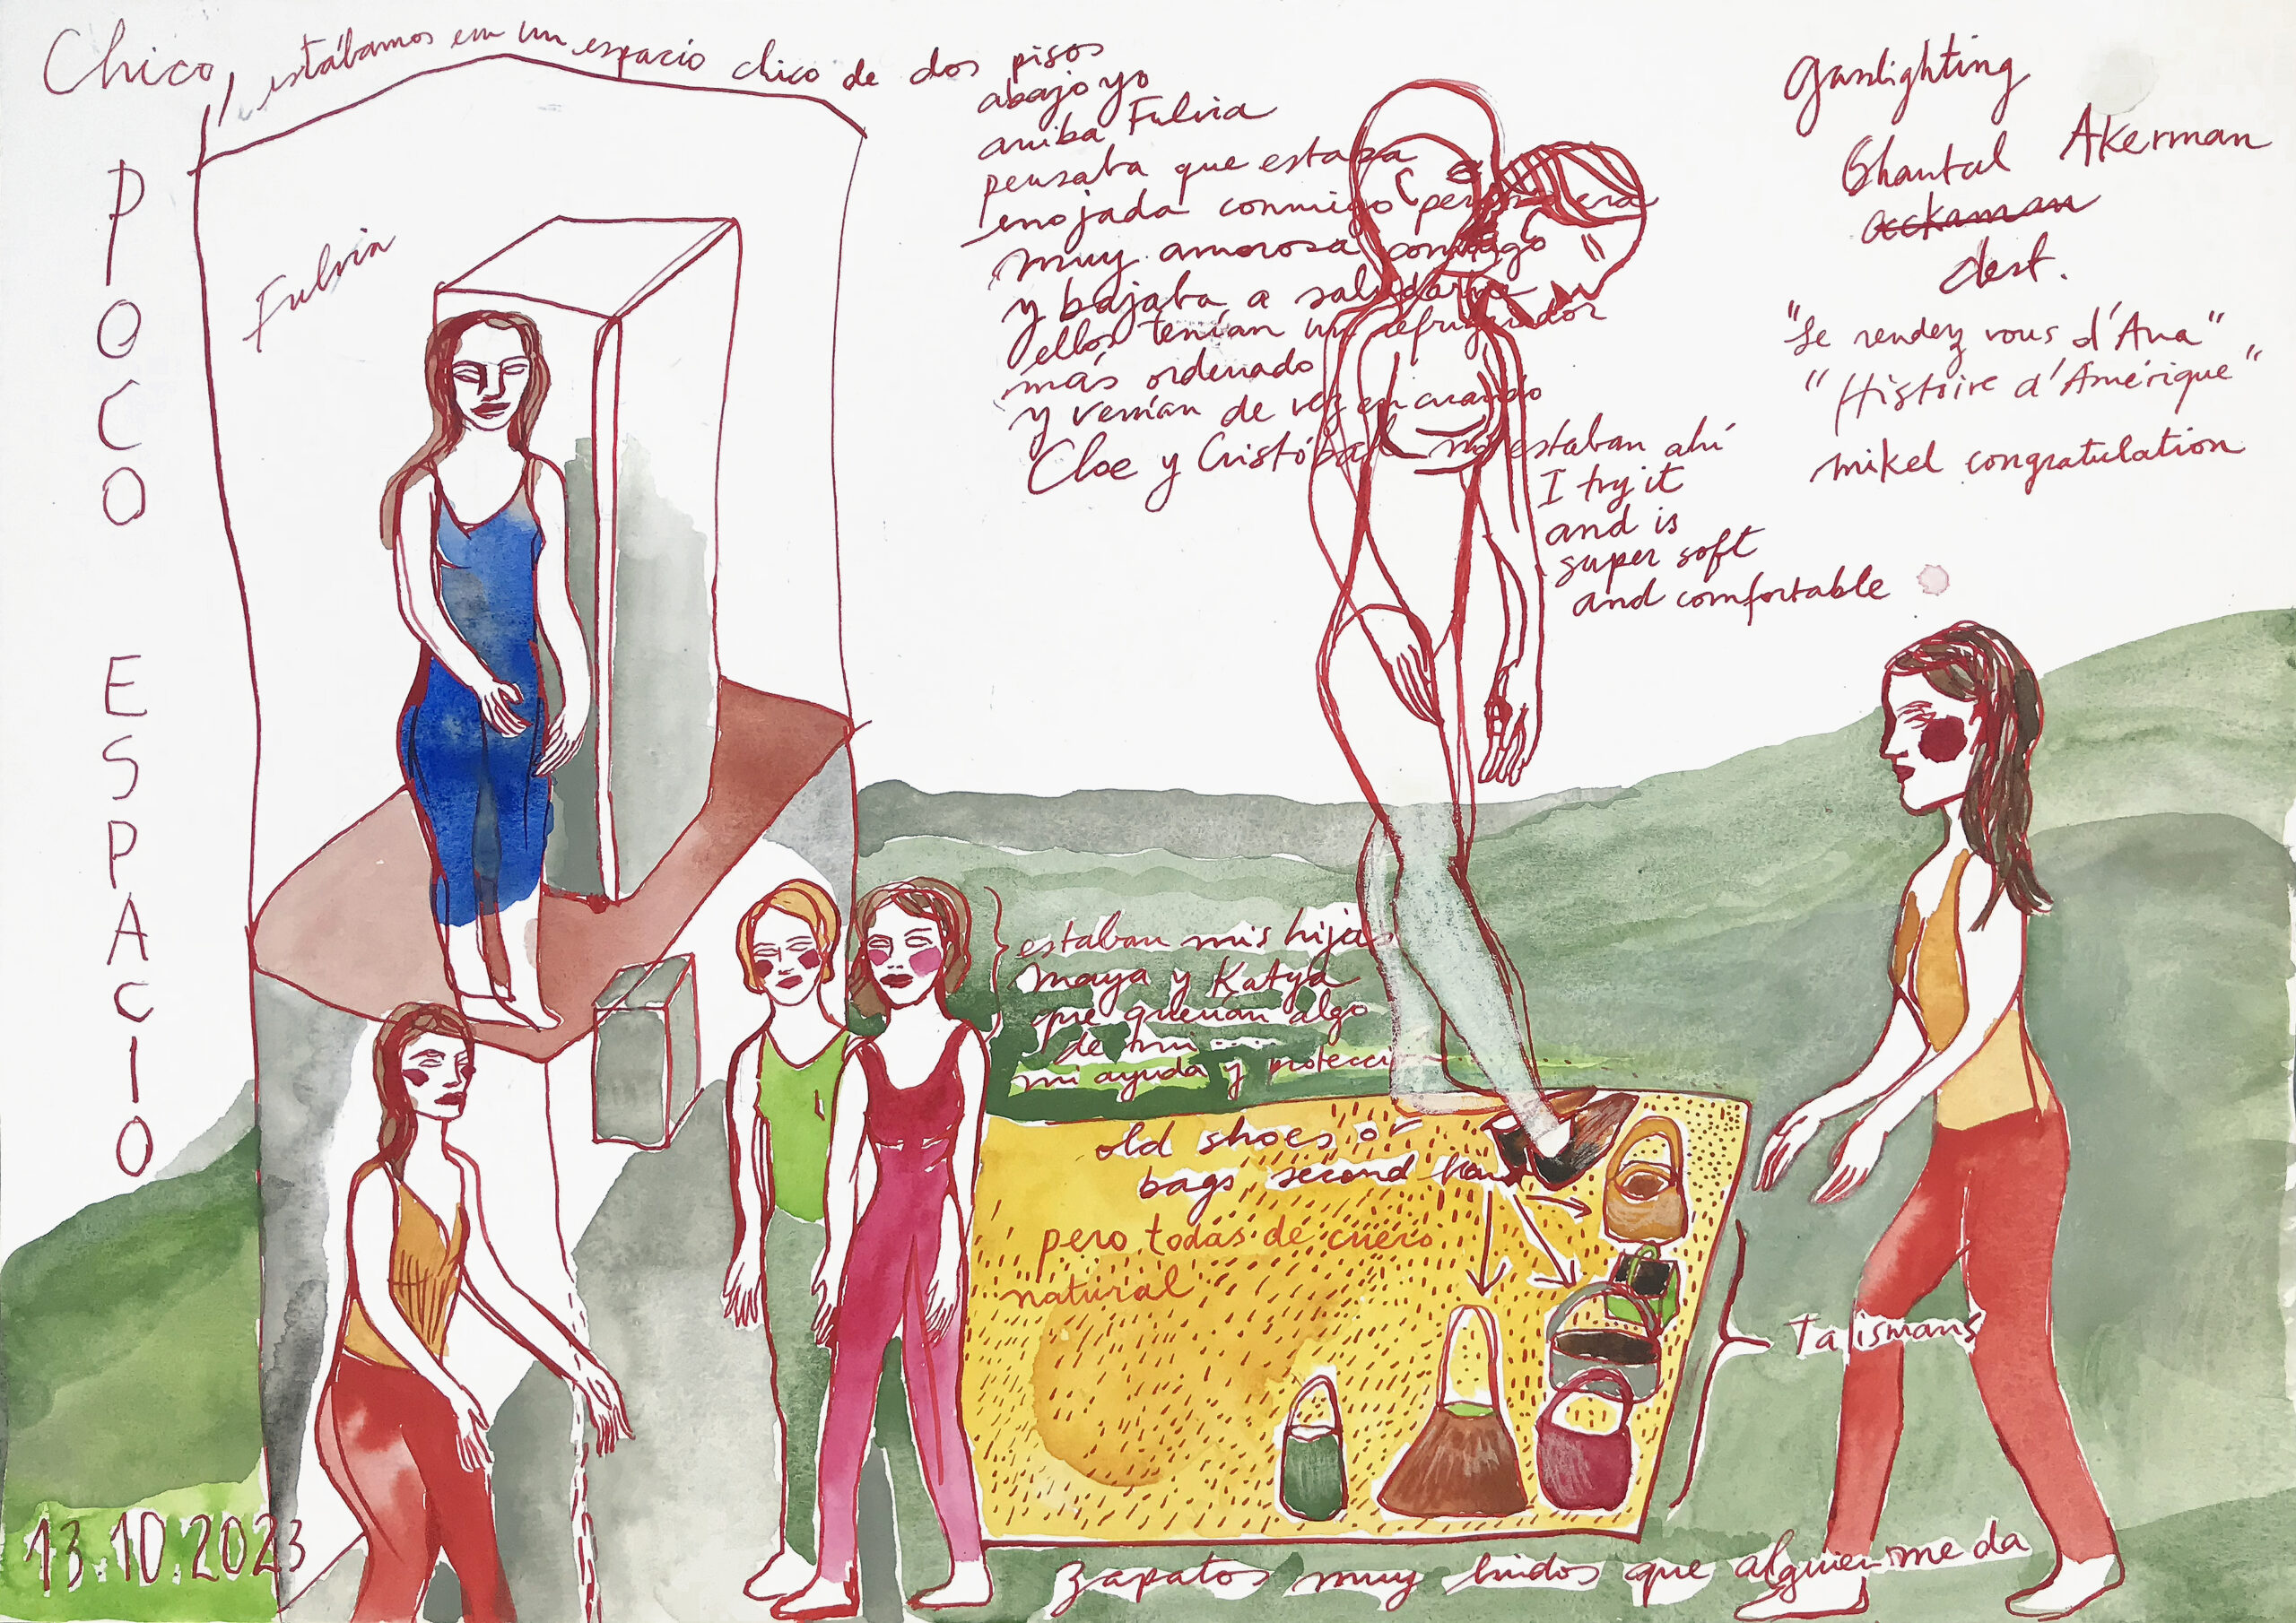 Chico, estábamos en un espacio chico de dos pisos
abajo yo
arriba Fulvia
pensaba que estaba
enojada conmigo pero no era
muy amorosa conmigo
y bajaba a saludarme
ellos tenían un refrigerador
más ordenado
y venían de vez en cuando
Cloe y Cristóbal no estaban ahí
I try it
and is
super soft
and comfortable
gaslighting
Chantal Akerman
dest.
"Le rendez vous d'Ana"
"Histoire d'Amérique"
mikel congratulation
POCO ESPACIO
Fulvia
estaban mis hijas
maya y Katya
que querían algo
de mi ....
mi ayuda y protección
old shoes or
bags second hand
pero todas de cuero
natural
Talismans
zapatos muy lindos que alguien me da
13.10.2023